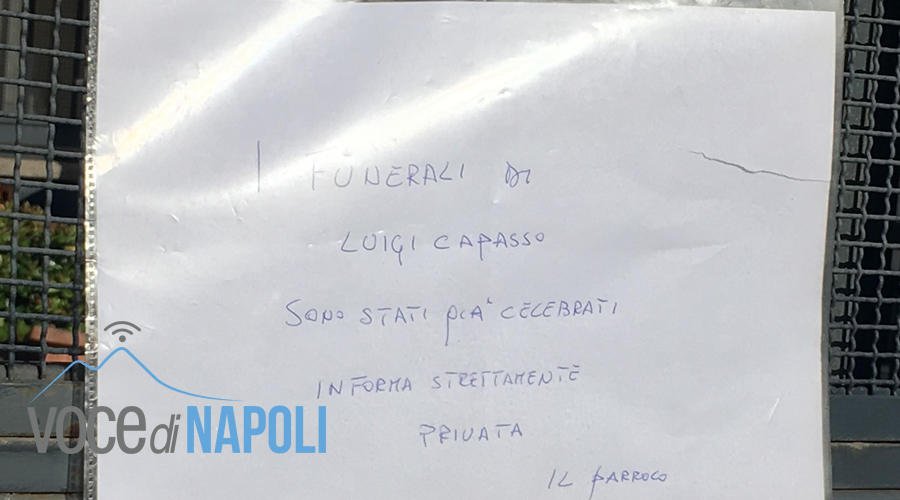 I FUNERALI DI
LUIGI CAPASSO
SONO STATI GIA' CELEBRATI
IN FORMA STRETTAMENTE
PRIVATA
IL PARROCO
VOCE di NAPOLI